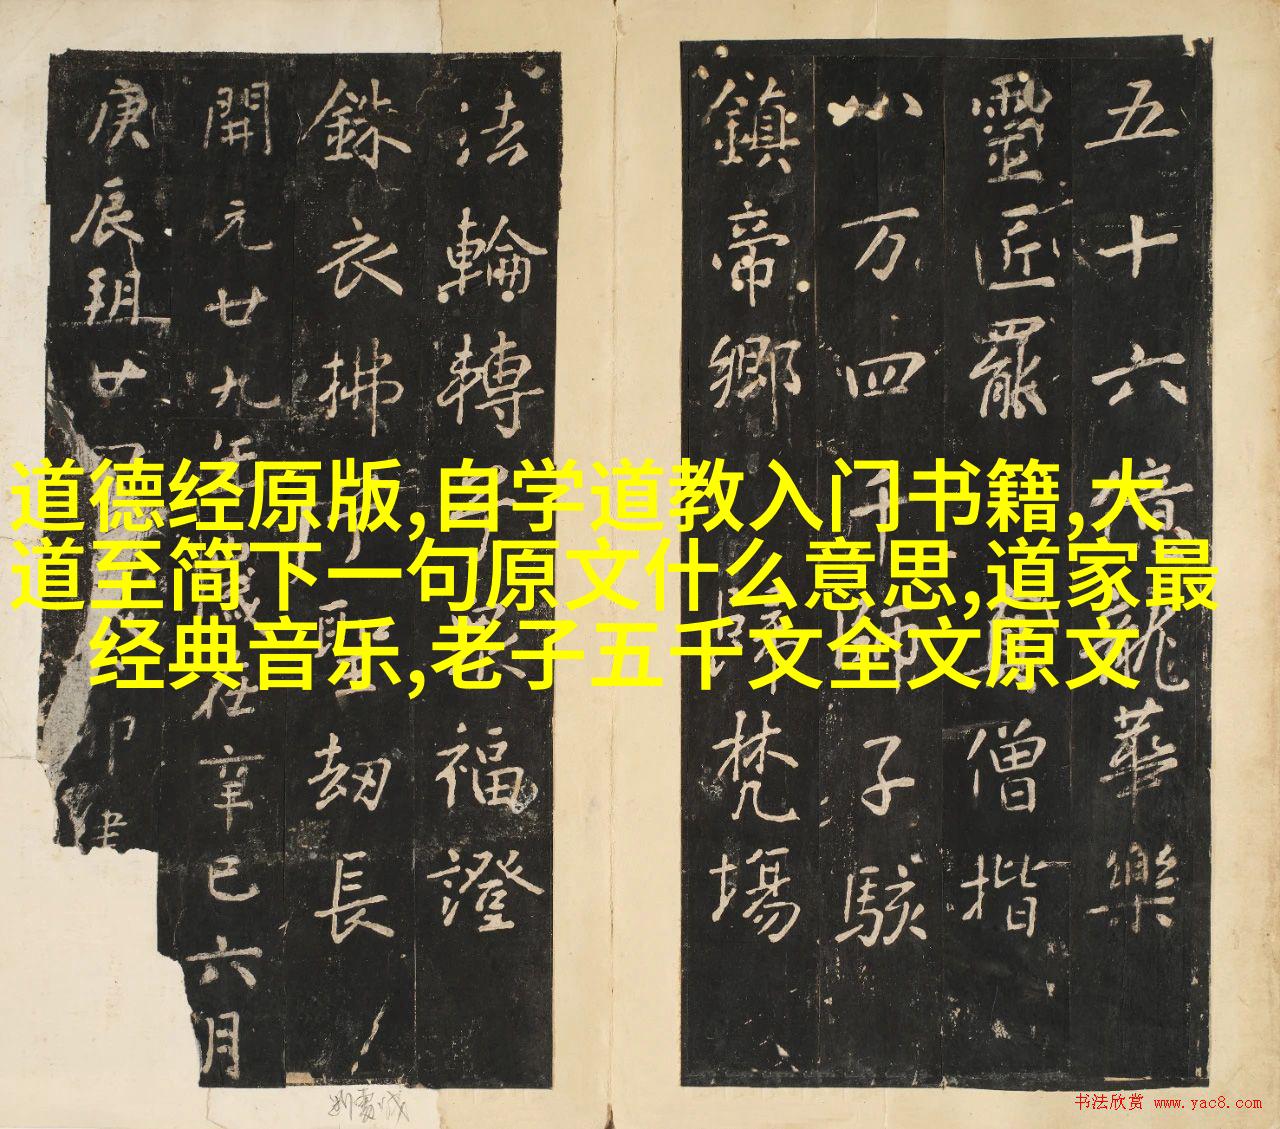 五十六龍華樂
靈匠罷僧揩
八万四千師子駭
鎮帝鄉歸梵場
法輪轉兮福澄
銖衣拂兮聖劫長
開元廿九年歲在辛巳六月
庚辰玥廿
道德经原版,自学道教入门书籍,大
道至简下一句原文什么意思,道家最
经典音乐,老子五千文全文原文
书法欣赏 www.yac8.com